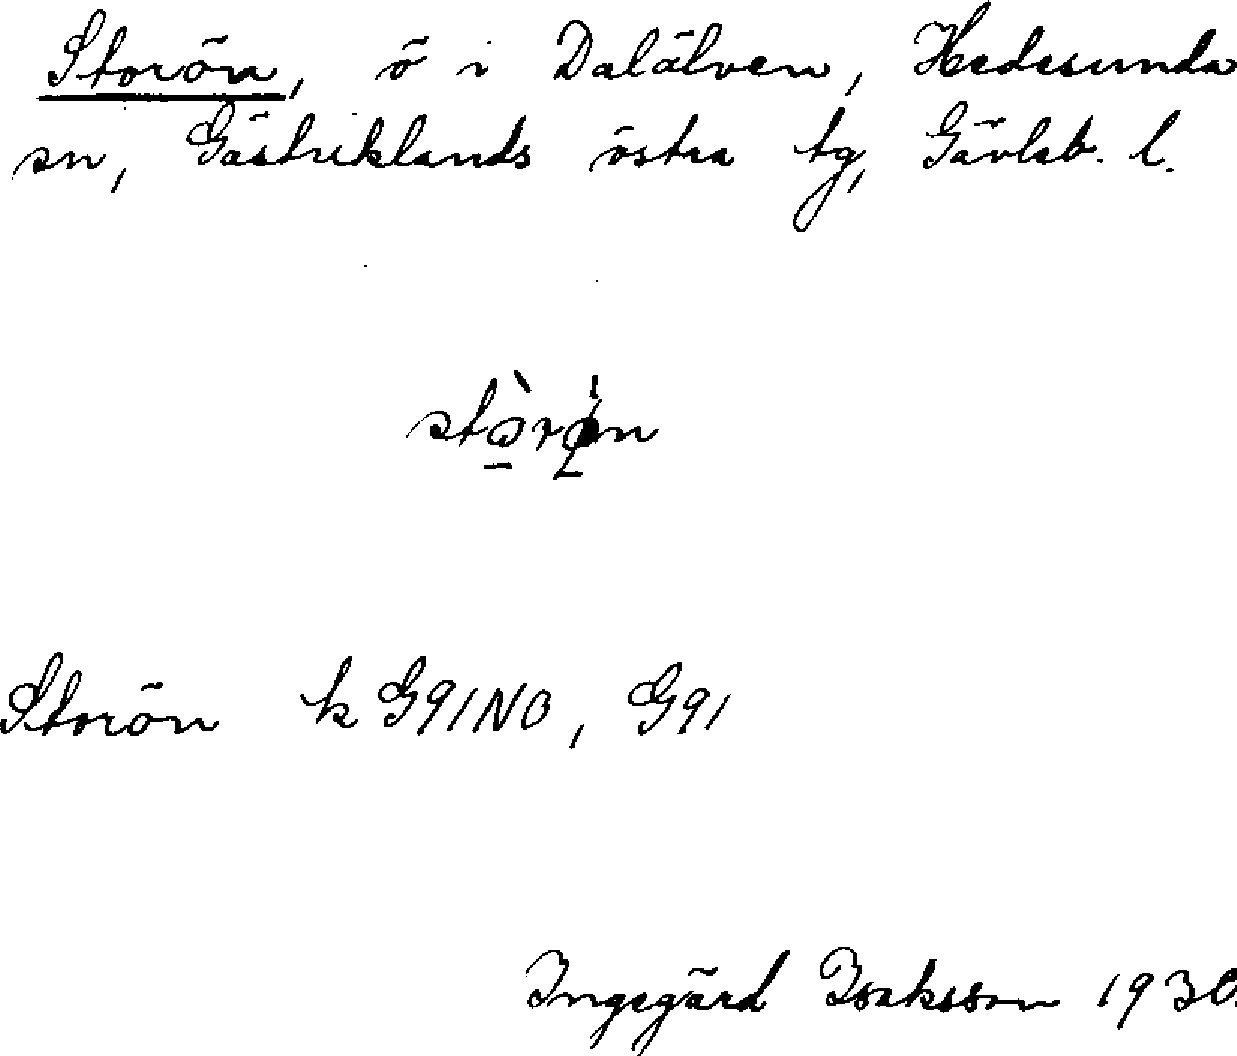 Storön, ö i Dalälven, Hedesunda
sn, Gästriklands östra tg, Gävleb. l.
Storön k G91NO, G91
Ingegärd Isaksson 1930.